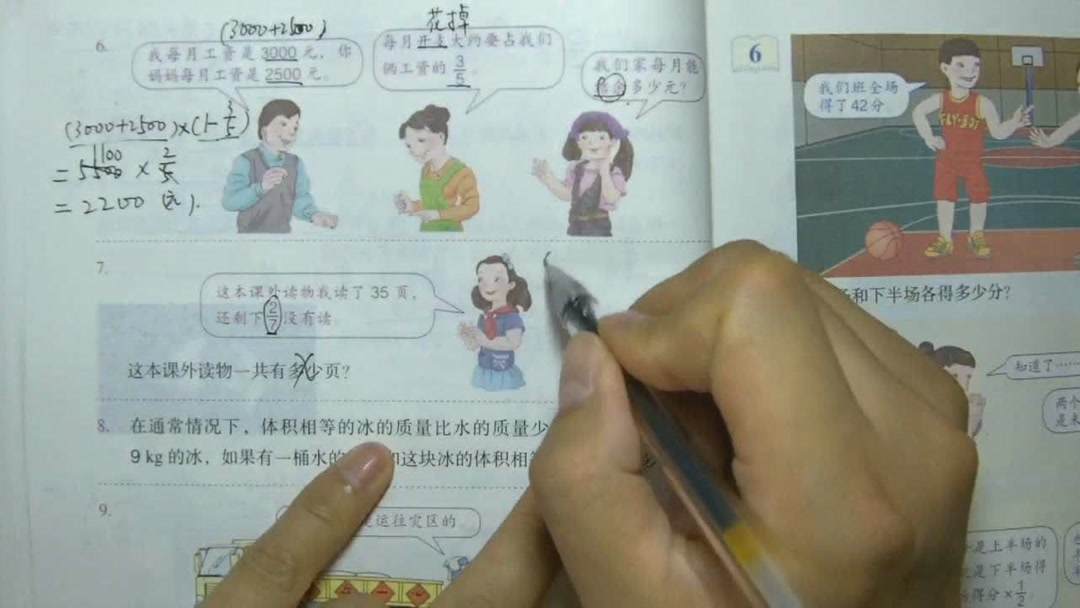 (3000+2500)
花掉
6.
我每月工资是3000元，你
妈妈每月工资是2500元。
每月开支大约要占我们
俩工资的3/5。
我们家每月能
多少元？
(3000+2500)×(1-3/5)
1100
= 5500 × 2/5
= 2200（元）.
7.
这本课外读物我读了35页，
还剩下2/7没有读。
这本课外读物一共有多少页？
8. 在通常情况下，体积相等的冰的质量比水的质量少
9 kg的冰，如果有一桶水的
这块冰的体积相
9.
运往灾区的
6
我们班全场
得了42分。
FLY-301
和下半场各得多少分？
知道了……
两个
是
是上半场的
是下半场得
得分×1/2